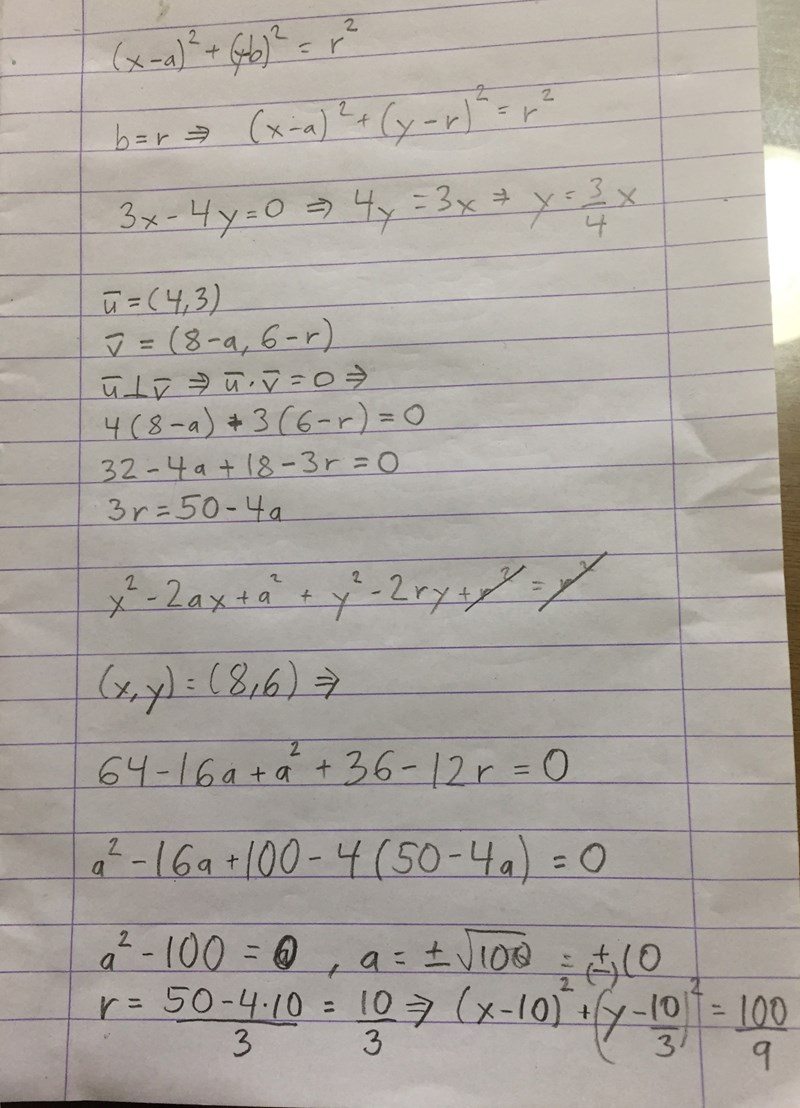 (x-a)² + (y-b)² = r²
b=r ⇒ (x-a)² + (y-r)² = r²
3x-4y=0 ⇒ 4y=3x ⇒ y=3/4 x
u̅=(4,3)
v̅=(8-a, 6-r)
u̅⊥v̅ ⇒ u̅·v̅=0 ⇒
4(8-a)+3(6-r)=0
32-4a+18-3r=0
3r=50-4a
x²-2ax+a²+y²-2ry+r²=r²
(x,y)=(8,6) ⇒
64-16a+a²+36-12r=0
a²-16a+100-4(50-4a)=0
a²-100=0, a=±√100=±(-)10
r=(50-4·10)/3=10/3 ⇒ (x-10)²+(y-10/3)²=100/9